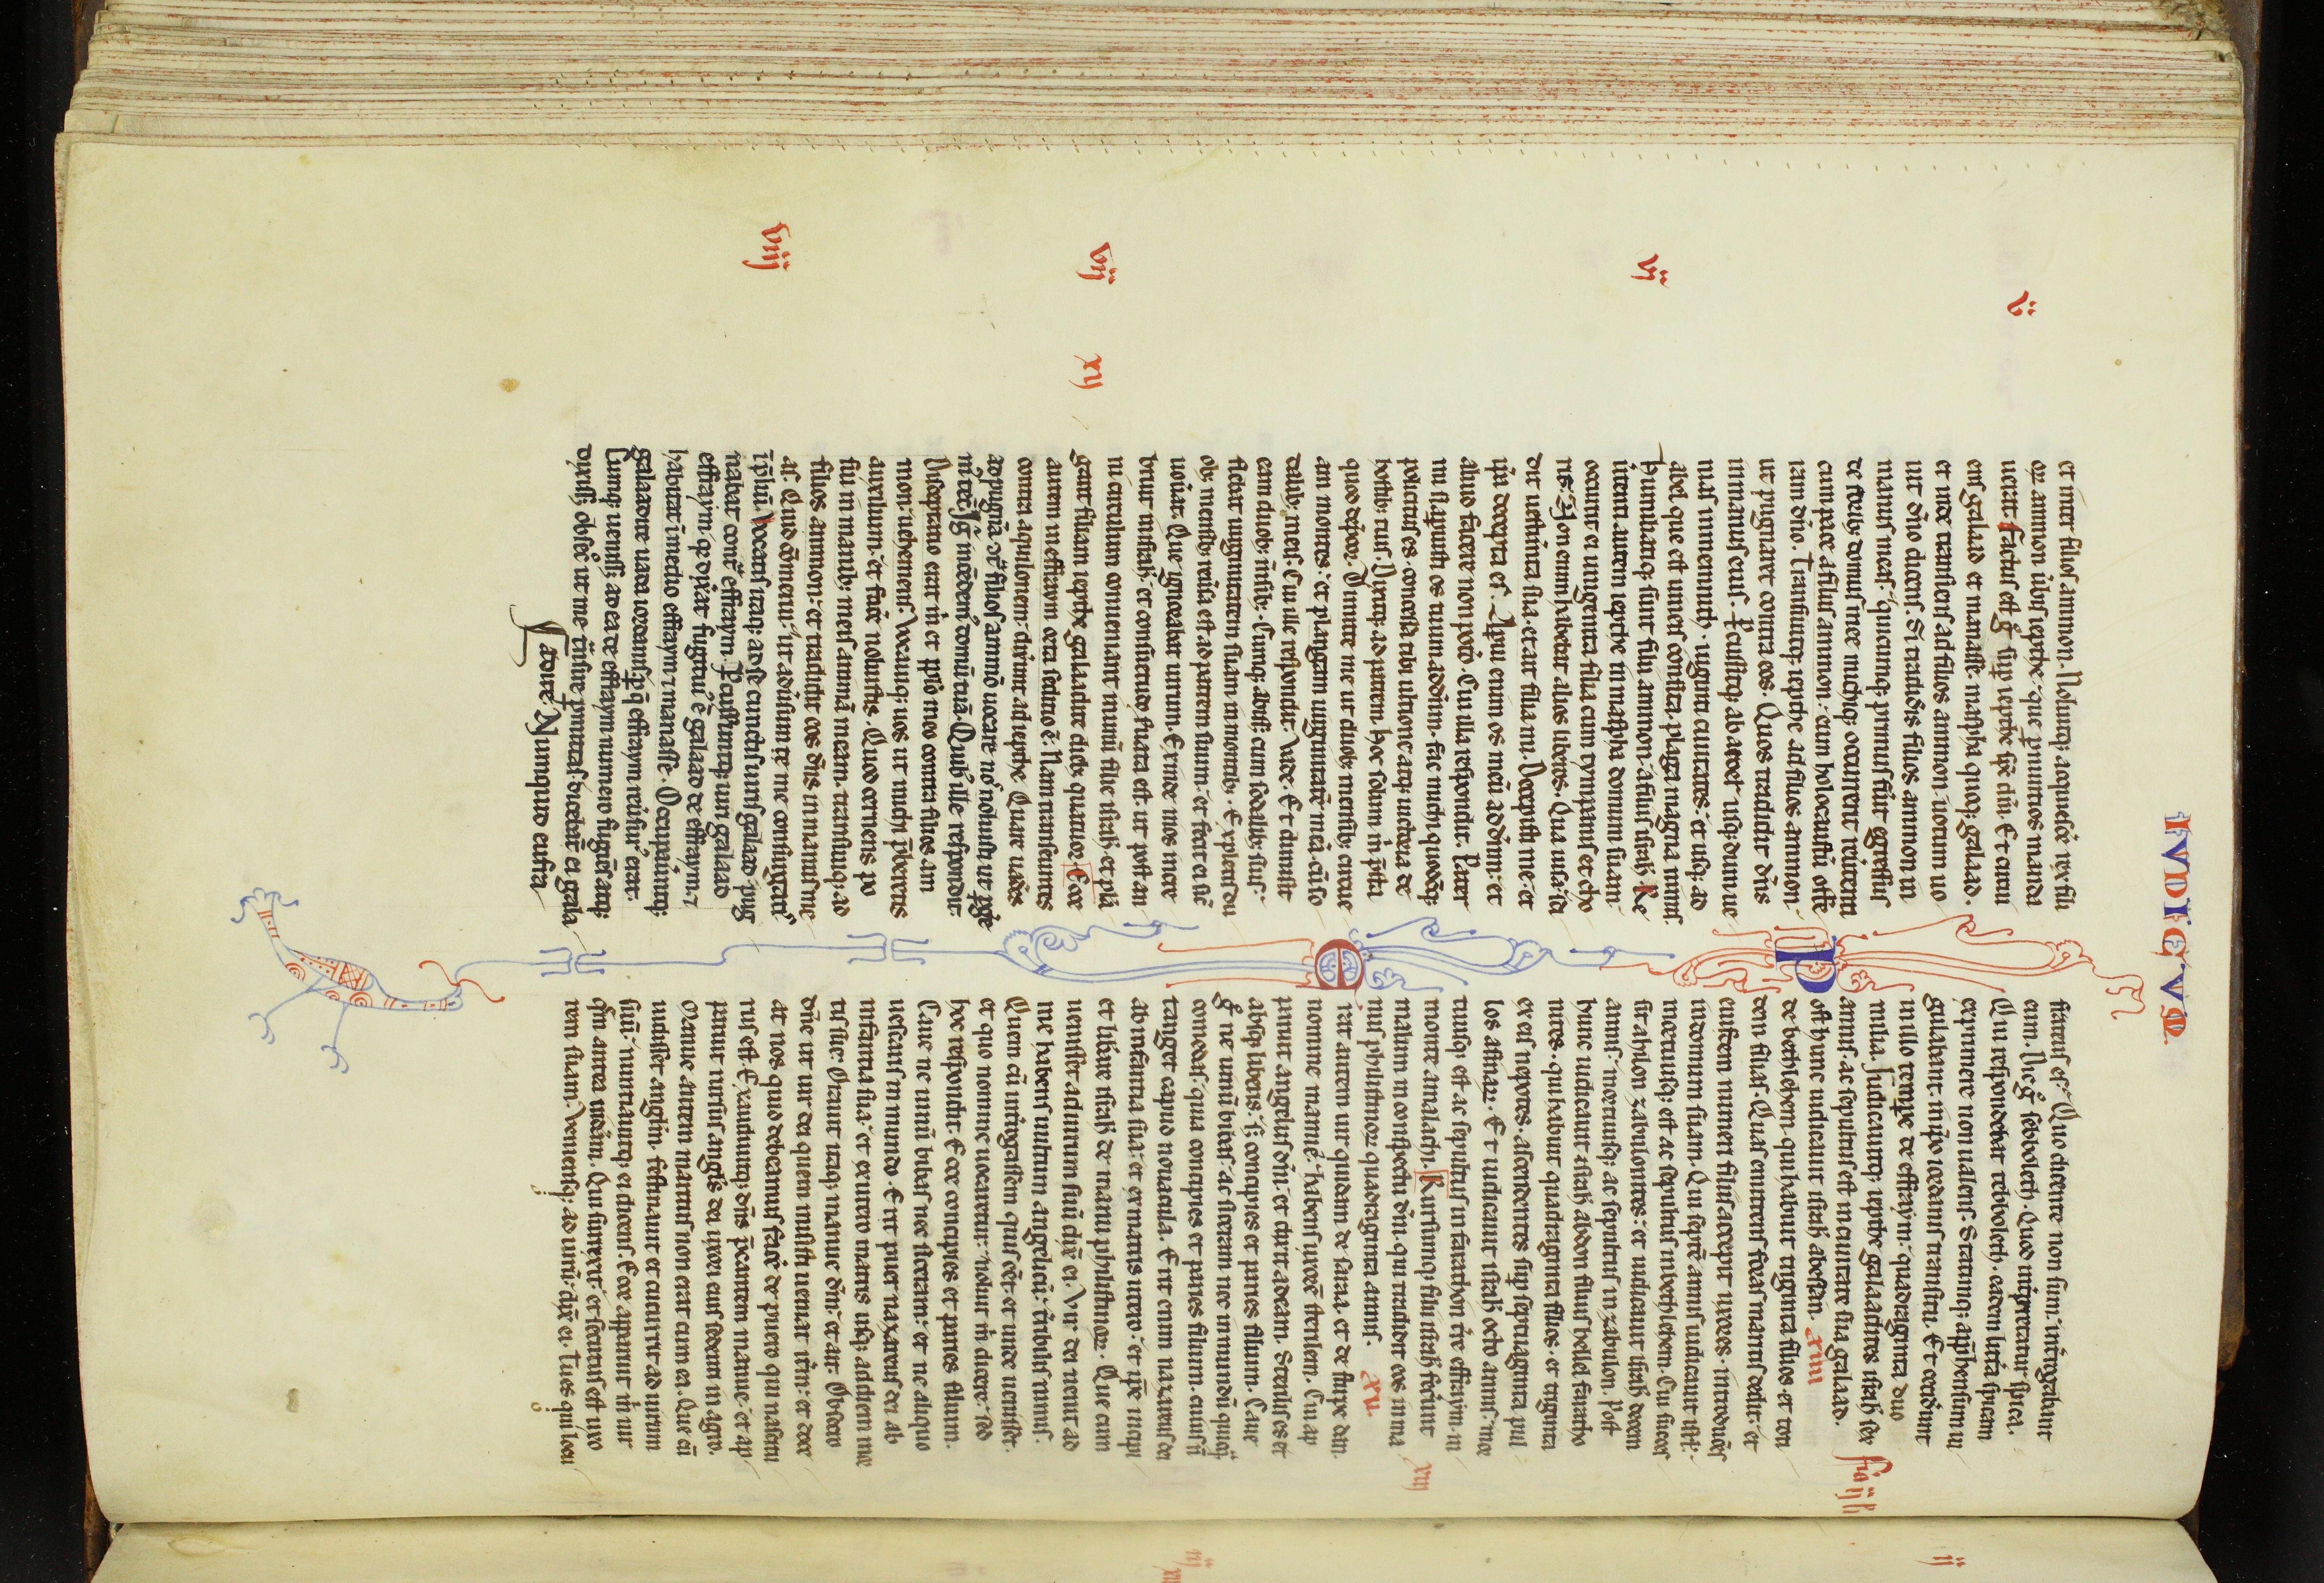 IVDICVM
et inter filios ammon. Noluitq; acquiescẽ rex filii
oꝝ ammon ũbis iepthe. que ꝑ nuntios manda
uerat. Factus est g̊ suꝑ iepthe sp̃c dñi. Et circu
iens galaad et manasse. maspha quoq; galaad.
et inde transiens ad filios ammon. uotum uo
uit dño dicens. Si tradidĩs filios ammon in
manus meas. quicumq; primus fũit egressus
de forib; domus mee michiq; occurrerit reũtenti
cum pace a filiis ammon. eum holocaustũ offẽ
ram dño. Transiuitq; iepthe ad filios ammon.
ut pugnaret contra eos. Quos tradidit dñs
in manus eius. Percussitq; ab aroer usq; dum ue
nias in mennith. uiginti ciuitates. et usq; ad
abel que est uineis consita. plaga magna nimis.
Humiliatiq; sunt filii ammon. a filiis isrl̃. Re
ũtenti autem iepthe in maspha domum suam.
occurrit ei unigenita filia cum tympanis et cho
ris. Non enim habebat alios liberos. Qua uisa. sci
dit uestimta sua. et ait filia mi. Decepisti me. et
ip̃a decepta es. Aperui enim os meũ ad dñm. et
aliud facere non potero. Cui illa respondit. Pater
mi si aperuisti os tuum ad dñm. fac michi quodcq;
pollicitus es. concessa tibi ultione atq; uictoria de
hostib; tuis. Dixitq; ad patrem. Hoc solum m̃ p̃sta
quod dep̃cor. Dimitte me ut duob; mensib; circue
am montes. et plangam uirginitatẽ meã. cũ so
dalib; meis. Cui ille respondit. Vade. Et dimisit
eam duob; m̃sib;. Cumq; abiiss; cum sodalib; suis.
flebat uirginitatem suam in montib;. Expletis du
ob; mensib; reũsa est ad patrem suum. et fecit ei sic̃
uoũat. Que ignorabat uirum. Exinde mos incre
bruit in isrl̃. et consuetudo seruata est. ut post an
ni circulum conueniant in unũ filie isrl̃. et plã
gant filiam iepthe galaadite dieb; quatuor. Ecce
autem in effraym orta seditio ẽ. Nam transeuntes
contra aquilonem. dixer̃t ad iepthe. Quare uadẽs
ad pugnã cõt̃ filios ammõ uocare nos noluisti ut pgẽ
m̃ tec̃. Ig̃ incẽdem̃ domũ tuã. Quib; ille respondit.
Disceptatio erat m̃ et pplõ meo contra filios am
mon. uehemens. Vocauiq; uos ut michi p̃beretis
auxilium. et facẽ noluistis. Quod cernens po
sui in manib; meis animã meam. transiuiq; ad
filios ammon. et tradidit eos dñs in manus me
as. Quid cõmerui. ut adũsum me consurgatis
ĩ p̃liũ. Vocatis itaq; ad se cunctis uiris galaad. pug
nabat contr̃ effraym. Percusseruntq; uiri galaad
effraym. q̃ dix̃at fugitiu᷒ ẽ galaad de effraym. ⁊
habitat ĩ medio effraym ⁊ manasse. Occupaũtq;
galaadite uada iordanis. p̃ q̃ effraym reũsur᷒ erat.
Cumq; uenisss; ad ea de effraym numero fugiẽs atq;
dixiss; obsec̃ ut me t̃nsire pmittas. dicebãt ei gala
adite. Numquid eufra
v
vi
vii
xij
viij
steus es. Quo dicente non sum. int̃rogabant
eum. Dic g̊ sebboleth. Quod int̃pretatur spica.
Qui respondebat tebboleth. eadem littã spicam
exprimere non ualens. Statimq; app̃hensum iu
gulabant in ip̃o iordanis transitu. Et cecidĩunt
in illo tempr̃e de effraym. quadraginta duo
milia. Iudicauitq; iepthe galaadites isrl̃ sex
annis. ac sepultus est in ciuitate sua galaad.
Post hunc iudicauit isrl̃ abessan xiiii
de bethleem. qui habuit triginta filios et toti
dem filias. Quas emittens foras maritis dedit. et
eiusdem numeri filiis accepit uxores. introducẽs
in domum suam. Qui septẽ annis iudicauit isrl̃.
mortuusq; est ac sepultus in bethlehem. Cui succes
sit ahilon zabulonites. et iudicauit isrl̃ decem
annis. mortuusq; ac sepultus in zabulon. Post
hunc iudicauit isrl̃ abdon filius hellel farato
nites. qui habuit quadraginta filios. et triginta
ex eis nepotes. ascendentes sup septuaginta pul
los asinaꝝ. Et iudicauit isrl̃ octo annis. mor
tuusq; est ac sepultus in farathon tr̃e effraym. in
monte amalech. Rursumq; filii isrl̃ fecĩunt
malum in conspectu dñi. qui tradidit eos in ma
nus philistinoꝝ quadraginta annis. xv.
Erat autem uir quidam de saraa. et de stirpe dan.
nomine manue. habens uxorẽ sterilem. Cui ap
paruit angelus dñi. et dixit ad eam. Sterilis es et
absq; liberis. s; concipies et paries filium. Caue
g̊ ne uinũ bibas. ac siceram nec inmundũ quicq̃
comedas. quia concipies et paries filium. cuius ñ
tanget capud nouacula. Erit enim nazareus dei
ab infantia sua. et ex matris utero. et ip̃e incipi
et libẽare isrl̃ de manu philistinoꝝ. Que cum
uenisset ad uirum suũ dix̃ ei. Vir dei uenit ad
me habens uultum angelicũ. terribilis nimis.
Quem cũ int̃rogassem quis eẽt. et unde uenisset.
et quo nomine uocaretur. noluit m̃ dicere. sed
hoc respondit. Ecce concipies et paries filium.
Caue ne uinũ bibas nec siceram. et ne aliquo
uescaris inmundo. Erit puer nazareus dei ab
infantia sua. et ex utero matris usq; ad diem mor
tis sue. Orauit itaq; manue dñm. et ait. Obsecro
dñe ut uir dei quem misisti ueniat itm̃. et doce
at nos quid debeamus facẽ de puero qui nascitu
rus est. Exaudiuitq; dñs p̃cantem manue. et ap
paruit rursus angl̃s dei uxori eius sedenti in agro.
Manue autem maritus non erat cum ea. Que cũ
uidisset angl̃m. festinauit et cucurrit ad uirum
suũ. nuntiauitq; ei dicens. Ecce apparuit m̃ uir
q̃m antea uidam̃. Qui surrexit. et secutus est uxo
rem suam. Veniensq; ad uirũ. dix̃ ei. Tu es qui locu
xiii
ij